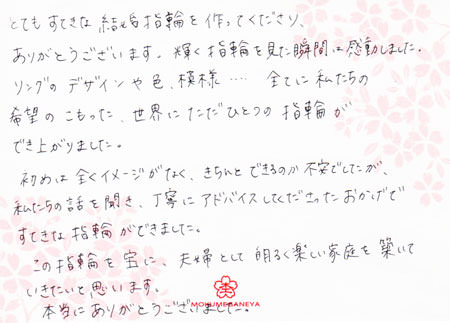 とてもすてきな結婚指輪を作ってくださり、
ありがとうございます。輝く指輪を見た瞬間は感動しました。
リングのデザインや色、模様…… 全てに私たちの
希望のこもった、世界にただひとつの指輪が
でき上がりました。
初めは全くイメージがなく、きちんとできるのか不安でしたが、
私たちの話を聞き、丁寧にアドバイスしてくださったおかげで
すてきな指輪ができました。
この指輪を宝に、夫婦として明るく楽しい家庭を築いて
いきたいと思います。
MOKUMEGANEYA
本当にありがとうございました。